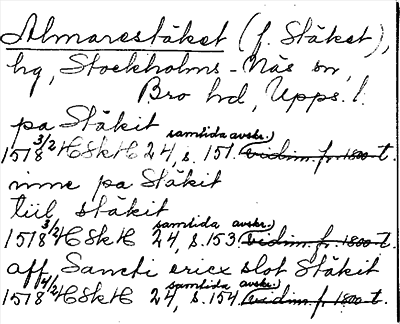 Almarestäket (f. Stäket),
hg, Stockholms-Näs sn,
Bro hd, Upps. l.
pa Stäkit
1518 3/2 HSkH 24, s. 151. samtida avskr.) vidim. fr. 1800-t.
inne pa Stäkit
tiil stäkit
1518 3/2 HSkH 24, s. 153 samtida avskr.) vidim. fr. 1800-t.
aff Sancti ericx slot Stäkit
1518 4/2 HSkH 24, s. 154 samtida avskr.) vidim. fr. 1800-t.